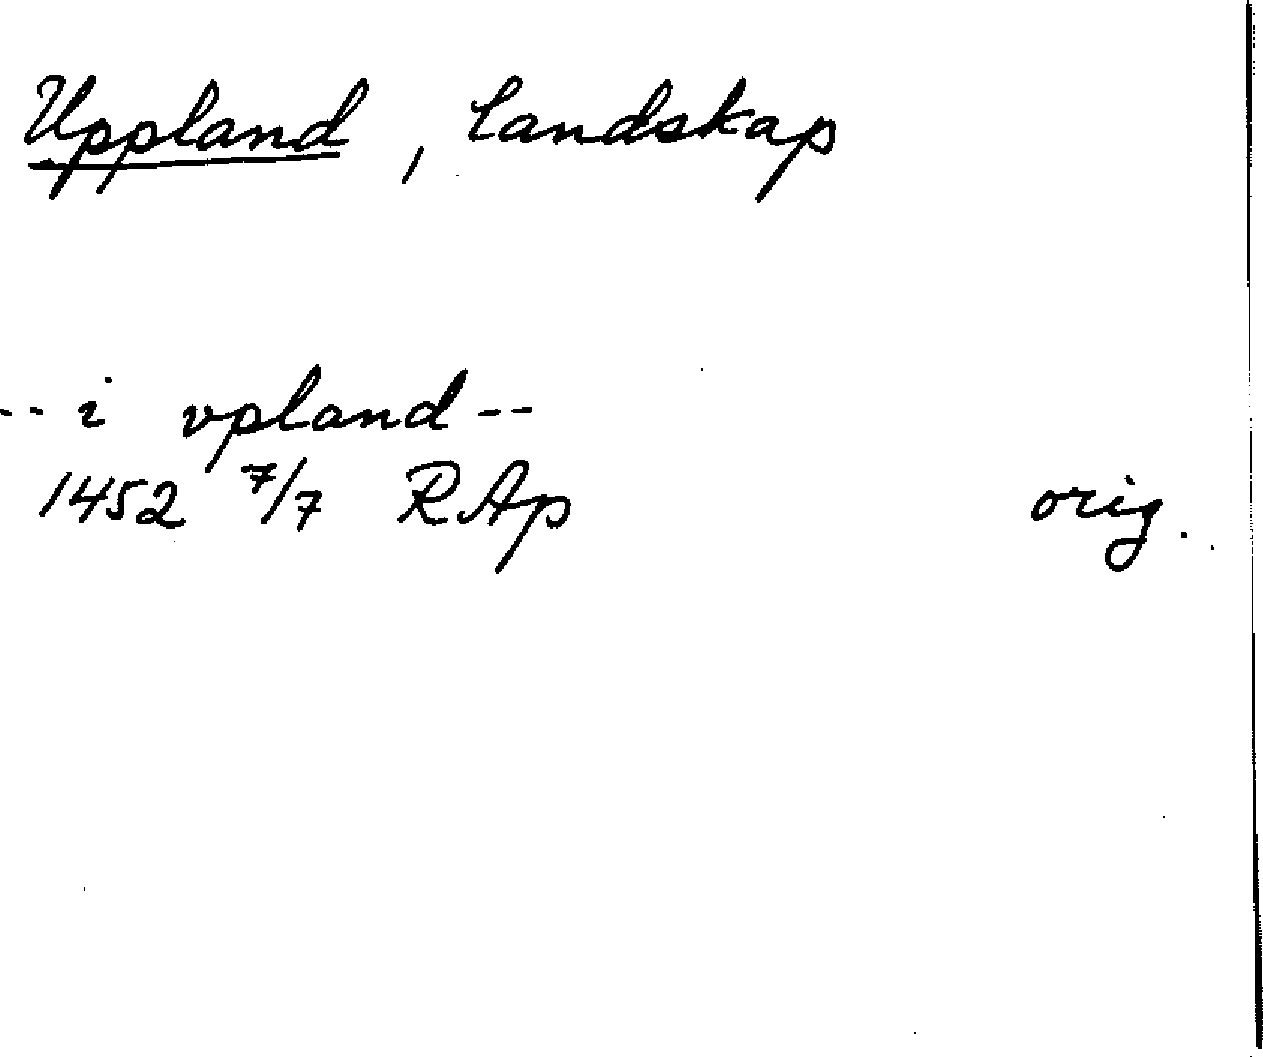 Uppland, landskap
-- i vpland --
1452 7/7 RAp orig.